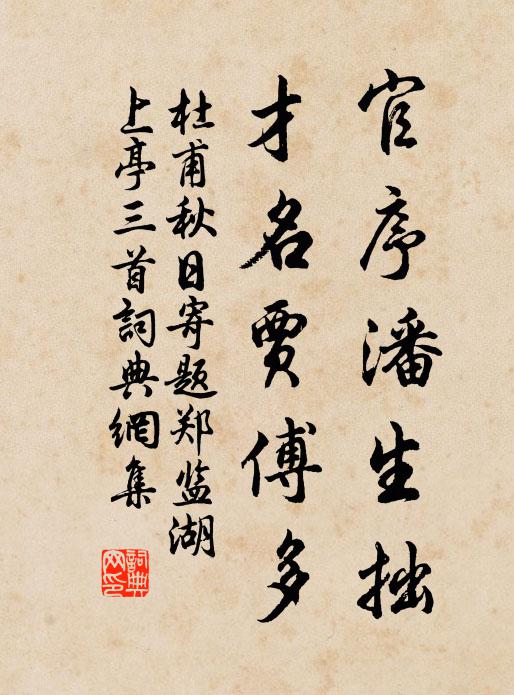 官序潘生拙
才名贾傅多
杜甫秋日寄题郑监湖
上亭三首詞典網集
詞典
网印